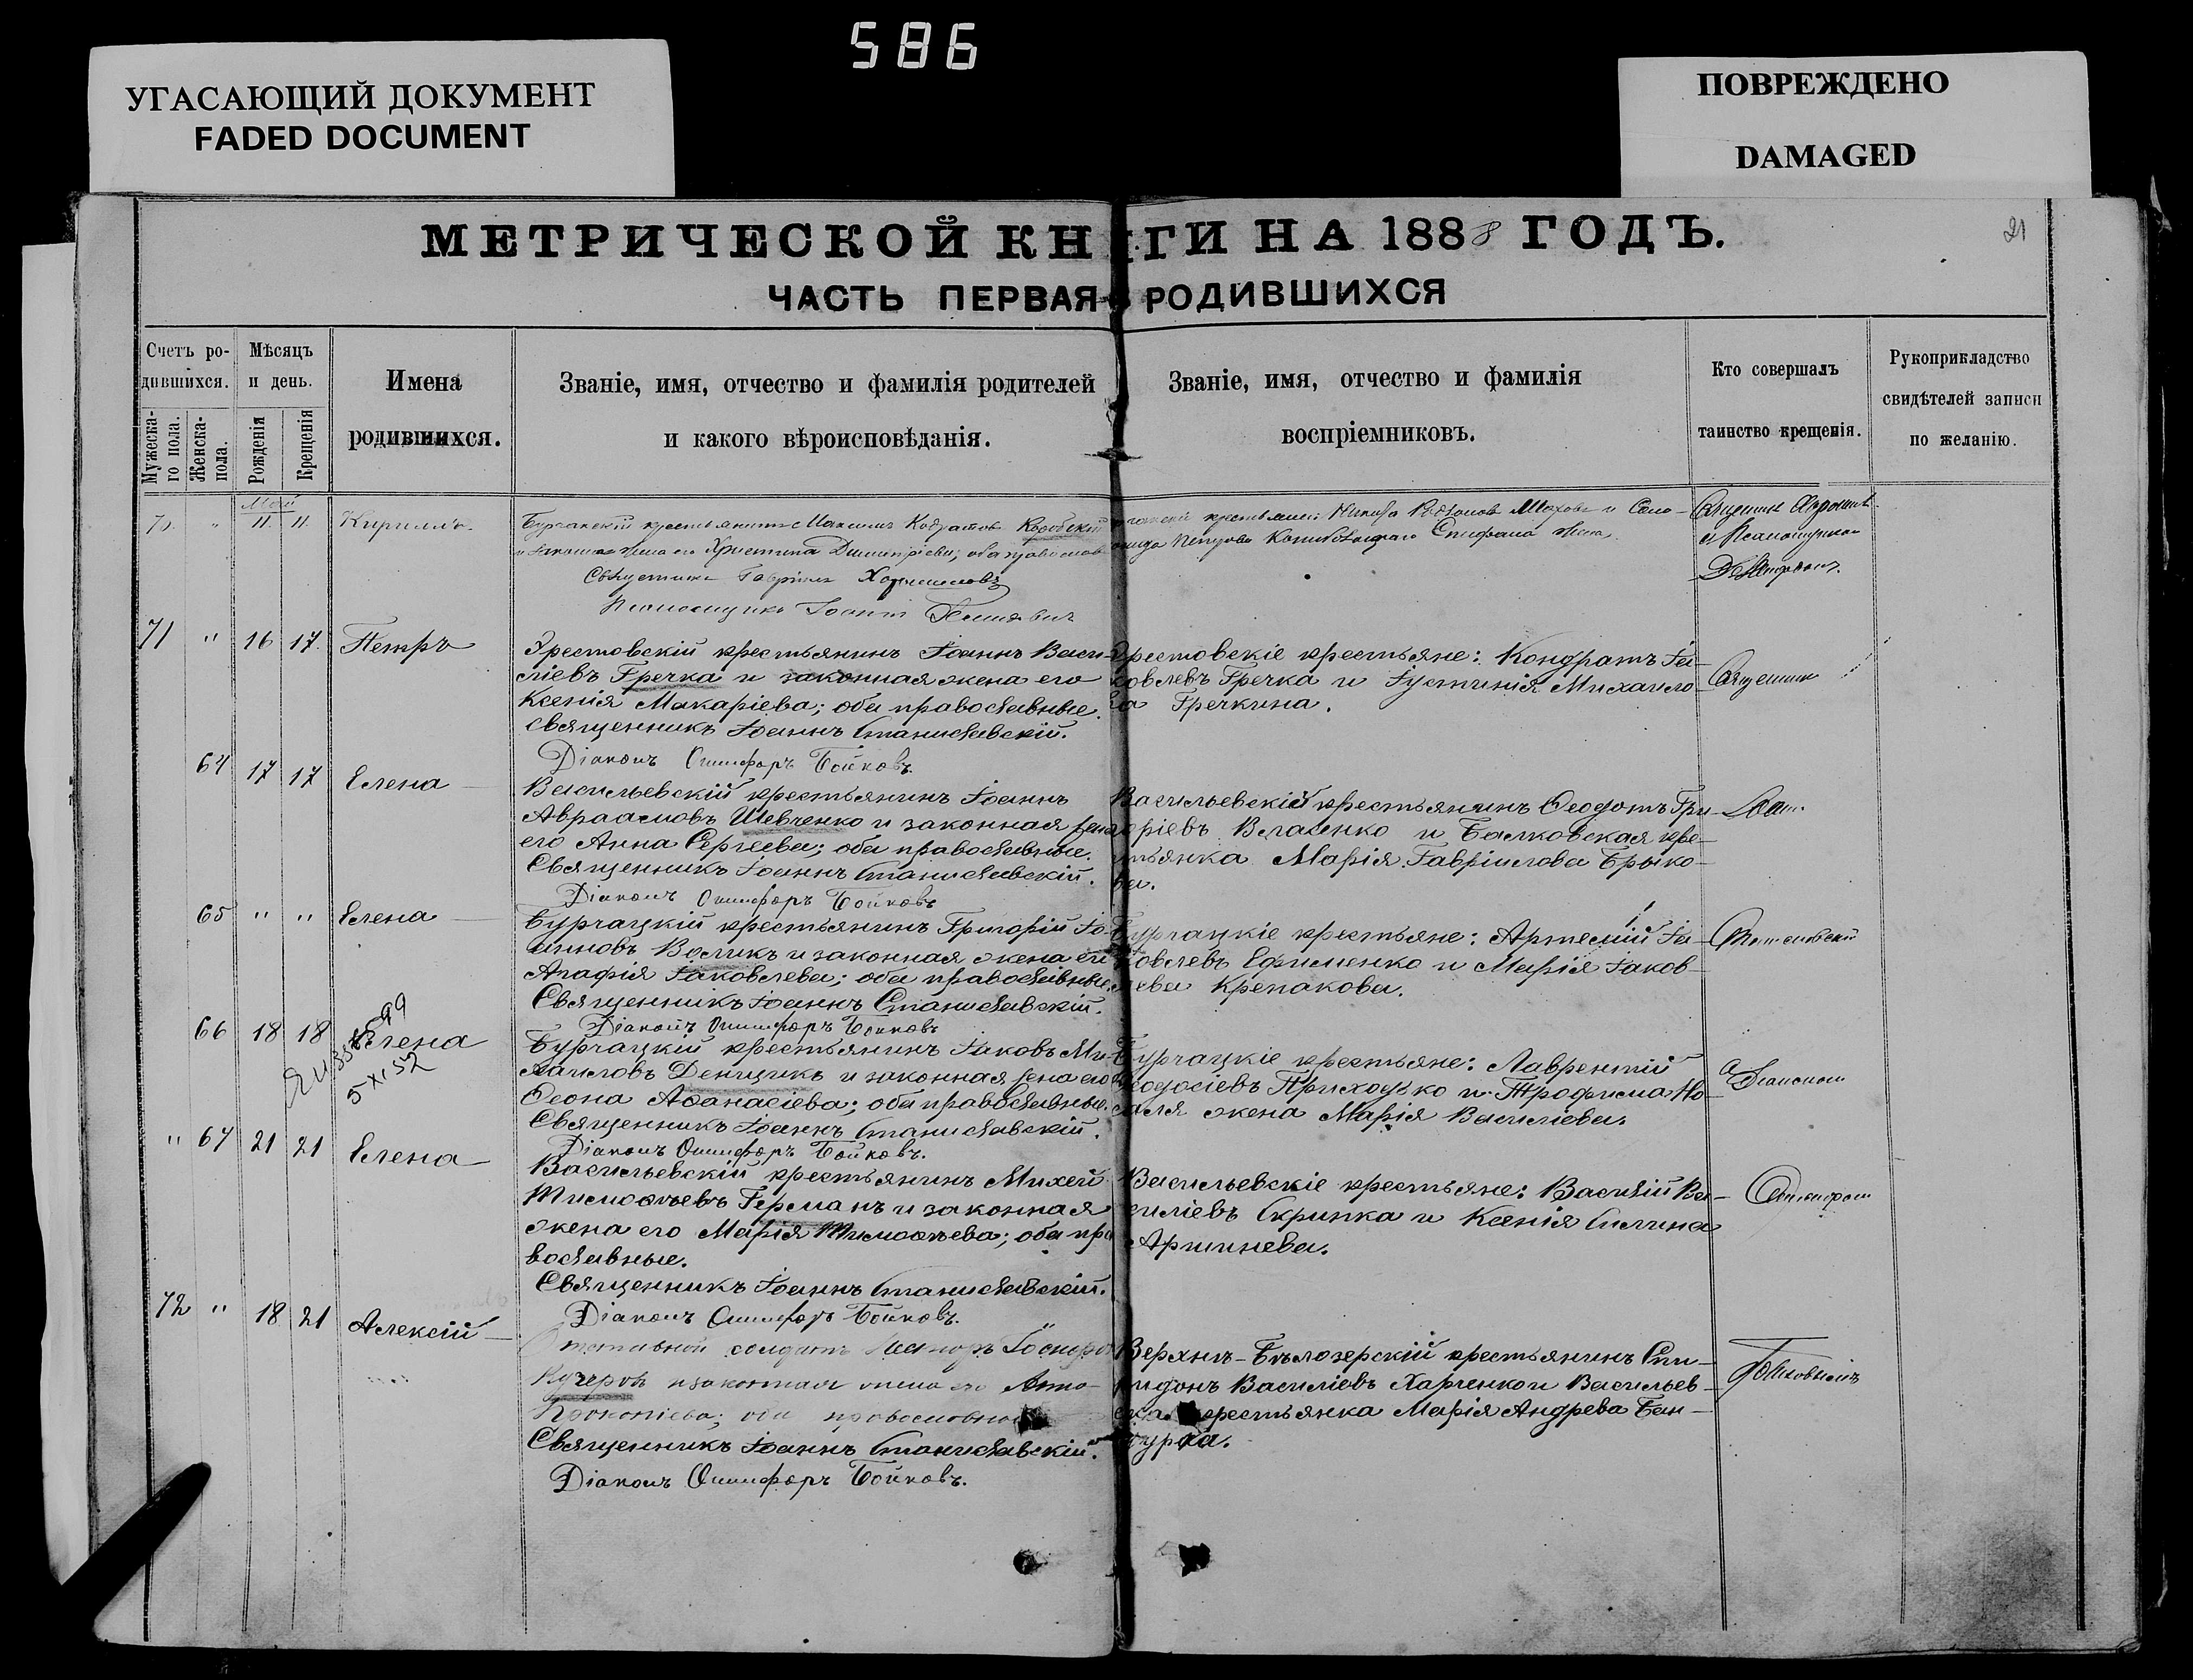 586
УГАСАЮЩИЙ ДОКУМЕНТ
FADED DOCUMENT
ПОВРЕЖДЕНО
DAMAGED
МЕТРИЧЕСКОЙ КНИГИ НА 1888 ГОДЪ.
21
ЧАСТЬ ПЕРВАЯ РОДИВШИХСЯ
Счетъ ро-
дившихся.
Мужеска-
го пола.
Женска-
пола.
Мѣсяцъ
и день.
Рожденія
Крещенія
Имена
родившихся.
Званіе, имя, отчество и фамилія родителей
и какого вѣроисповѣданія.
Званіе, имя, отчество и фамилія
воспріемниковъ.
Кто совершалъ
таинство крещенія.
Рукоприкладство
свидѣтелей записи
по желанію.
Май
70. " 11. 11. Кириллъ
крестьянинъ Максимъ
жена его Христина Димитріева; оба правослов
Гавріилъ
Псаломщикъ Іоаннъ
крестьяне:
Епифана жена
71 " 16 17. Петръ
Эрестовскій крестьянинъ Іоаннъ Васи-
ліевъ Гречка и законная жена его
Ксенія Макаріева; оба православные.
Священникъ Іоаннъ Станиславскій.
Діаконъ Онисифоръ Бойковъ.
Эрестовскіе крестьяне: Кондратъ Іа-
ковлевъ Гречка и Іустинія Михаило-
ва Гречкина.
Священник
64 17 17 Елена
Васильевскій крестьянинъ Іоаннъ
Авраамовъ Шевченко и законная жена
его Анна Сергѣева; оба православные.
Священникъ Іоаннъ Станиславскій.
Діаконъ Онисифоръ Бойковъ
Васильевскій крестьянинъ Ѳеодотъ Гри-
горіевъ Власенко и Балковская кре-
стьянка Марія Гавріилова Брыко-
ва.
65 " " Елена
Бурчацкій крестьянинъ Григорій Іо-
анновъ Воликъ и законная жена его
Агафія Іаковлева; оба православные.
Священникъ Іоаннъ Станиславскій.
Діаконъ Онисифоръ Бойковъ
Бурчацкіе крестьяне: Артемій Іа-
ковлевъ Ефименко и Марія Іаков-
лева Крепакова.
66 18 18 Елена
5 XI 52
Бурчацкій крестьянинъ Іаковъ Ми-
хаиловъ Денщикъ и законная жена его
Ѳеона Аѳанасіева; оба православные.
Священникъ Іоаннъ Станиславскій.
Діаконъ Онисифоръ Бойковъ.
Бурчацкіе крестьяне: Лаврентій
Ѳеодосіевъ Приходько и Трофима
жена Марія Василіева.
" 67 21 21 Елена
Васильевскій крестьянинъ Михей
Тимоѳѣевъ Германъ и законная
жена его Марія Тимоѳѣева; оба пра
вославные.
Священникъ Іоаннъ Станиславскій.
Діаконъ Онисифоръ Бойковъ.
Васильевскіе крестьяне: Василій Ва-
силіевъ Скрипка и Ксенія Силина
Аришнева.
72 " 18 21 Алексій
солдатъ
Кучеровъ и законная жена его Анна
Прокопіева; оба
Священникъ Іоаннъ Станиславскій.
Діаконъ Онисифоръ Бойковъ.
Верхнѣ-Бѣлозерскій крестьянинъ Спи-
ридонъ Василіевъ Харченко и Васильев-
ска крестьянка Марія Андреева Бан-
дурка.